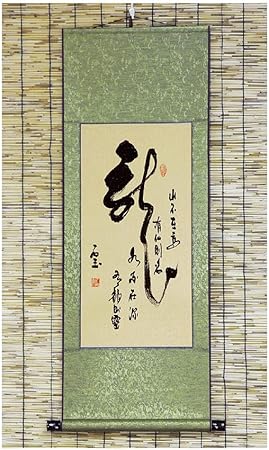 龍
山不在高
有仙則名
水不在深
有龍則靈